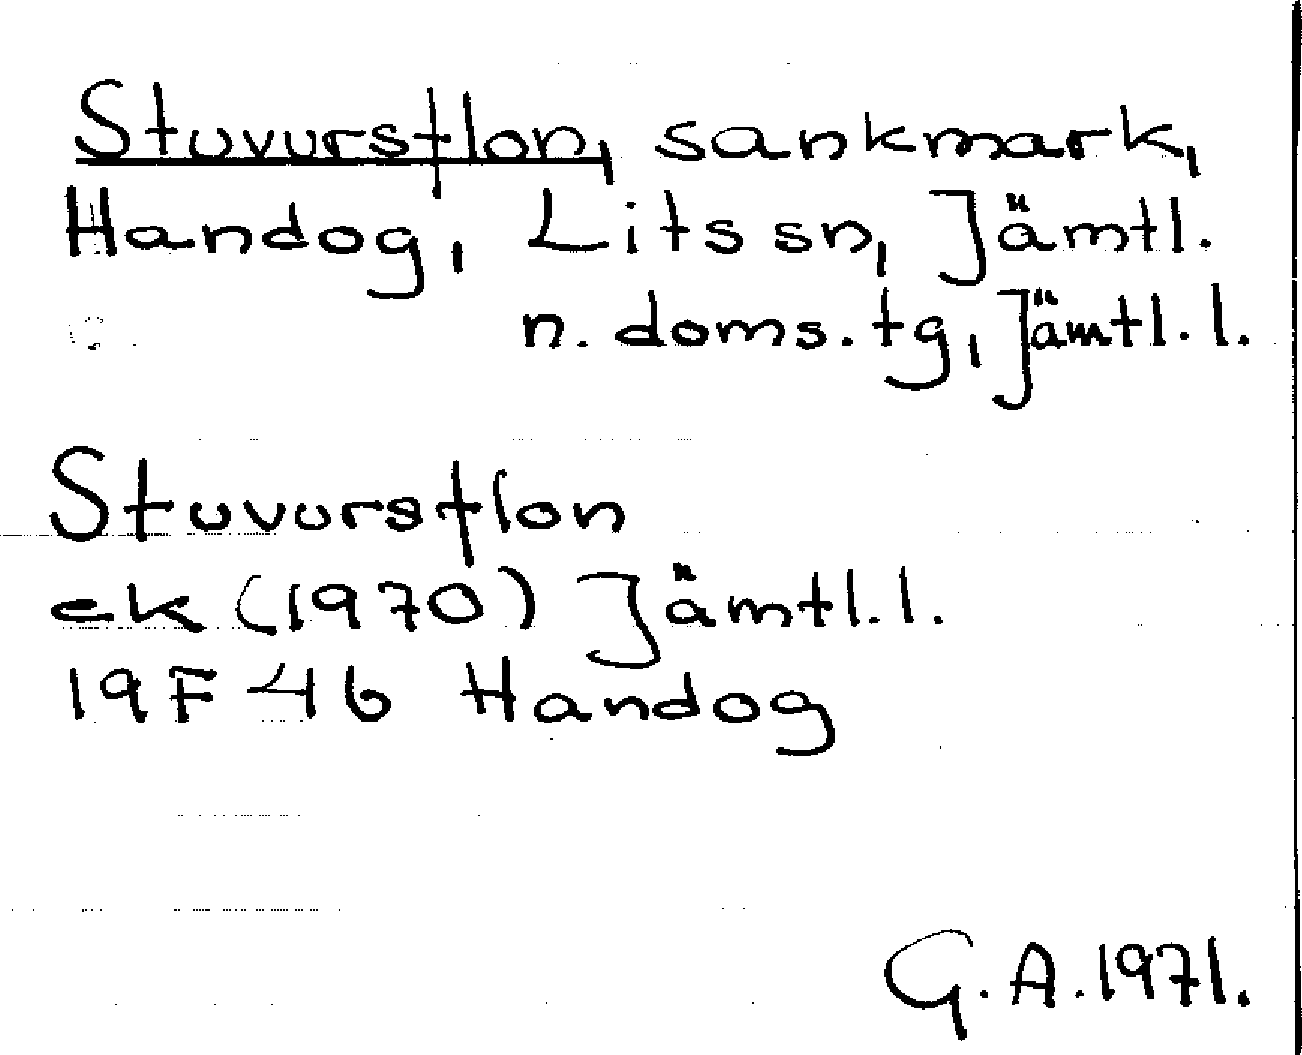 Stuvursflon, sankmark,
Handog, Lits sn, Jämtl.
n. doms. tg, Jämtl. l.
Stuvursflon
ek (1970) Jämtl. l.
19F 4b Handog
G. A. 1971.